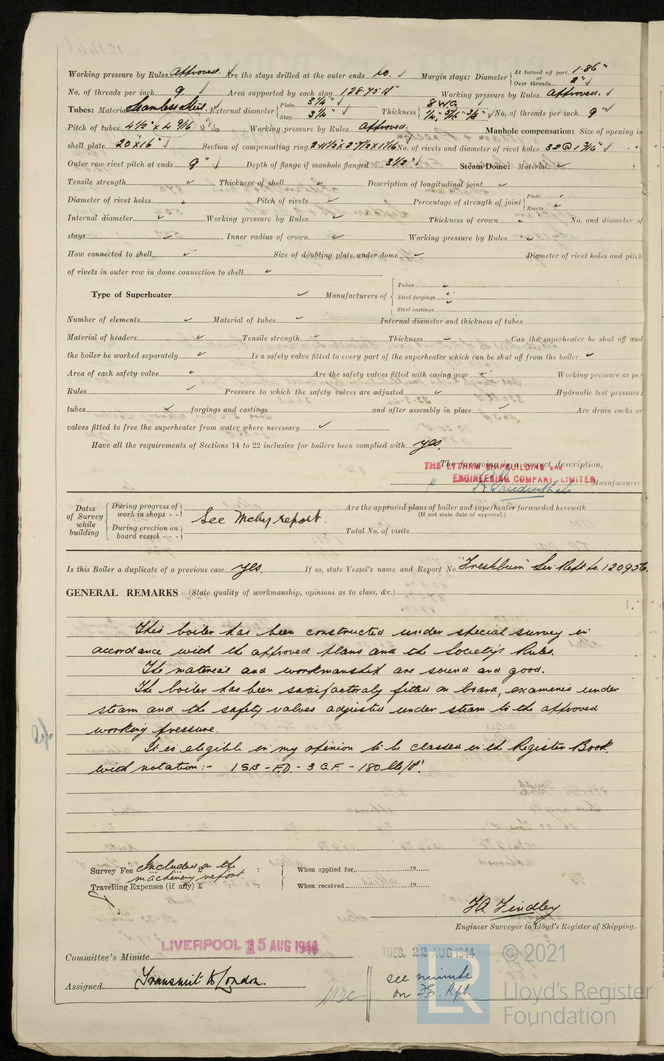 Working pressure by Rules Approved. Are the stays drilled at the outer ends no. Margin stays: Diameter { At turned off part, 1.86" or Over threads 2"
No. of threads per inch 9. Area supported by each stay Working pressure by Rules Approved.
Tubes: Material Seamless Steel. External diameter { Plain 3¼" Stay 3¼" Thickness { 8 WG No. of threads per inch 9"
Pitch of tubes Working pressure by Rules Approved. Manhole compensation: Size of opening in
shell plate 20"x16" Section of compensating ring No. of rivets and diameter of rivet holes
Outer row rivet pitch at ends 9" Depth of flange if manhole flanged 3½" Steam Dome: Material
Tensile strength Thickness of shell Description of longitudinal joint
Diameter of rivet holes Pitch of rivets Percentage of strength of joint { Plate Rivets
Internal diameter Working pressure by Rules Thickness of crown No. and diameter of
stays Inner radius of crown Working pressure by Rules
How connected to shell Size of doubling plate under dome Diameter of rivet holes and pitch
of rivets in outer row in dome connection to shell
Type of Superheater Manufacturers of { Tubes Steel forgings Steel castings
Number of elements Material of tubes Internal diameter and thickness of tubes
Material of headers Tensile strength Thickness Can the superheater be shut off and
the boiler be worked separately Is a safety valve fitted to every part of the superheater which can be shut off from the boiler
Area of each safety valve Are the safety valves fitted with easing gear Working pressure as per
Rules Pressure to which the safety valves are adjusted Hydraulic test pressure:
tubes forgings and castings and after assembly in place Are drain cocks or
valves fitted to free the superheater from water where necessary
Have all the requirements of Sections 14 to 22 inclusive for boilers been complied with yes.
The foregoing is a correct description,
THE LYTHAM SHIPBUILDING AND
ENGINEERING COMPANY LIMITED Manufacturer.
Dates of Survey while building { During progress of work in shops - - During erection on board vessel - - - } See Mchy report.
Are the approved plans of boiler and superheater forwarded herewith (If not state date of approval.)
Total No. of visits
Is this Boiler a duplicate of a previous case yes. If so, state Vessel's name and Report No. "Freshburn" Liv Rept No 120956.
GENERAL REMARKS (State quality of workmanship, opinions as to class, &c.)
This boiler has been constructed under special survey in
accordance with the approved plans and the Society's Rules.
The material and workmanship are sound and good.
The boiler has been satisfactorily fitted on board, examined under
steam and the safety valves adjusted under steam to the approved
working pressure.
It is eligible in my opinion to be classed in the Register Book
with notation:- 1SB - FD - 3 C.F. - 180 lb/□".
Survey Fee Included on the
machinery report
Travelling Expenses (if any) £
When applied for, 19
When received 19
Engineer Surveyor to Lloyd's Register of Shipping.
Committee's Minute LIVERPOOL 15 AUG 1944
TUES. 22 AUG 1944
Assigned Transmit to London.
see minute
on F.E. Rpt
LR
© 2021
Lloyd's Register
Foundation